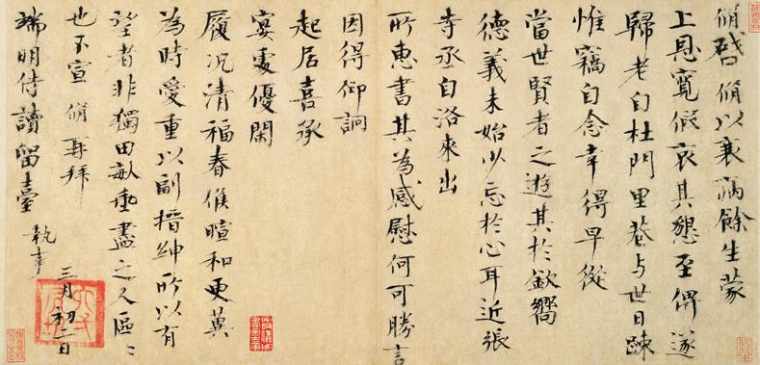 脩啓脩以衰病餘生蒙
上恩寬假哀其懇至俾遂
歸老自杜門里巷与世日踈
惟竊自念幸得早從
當世賢者之遊其於欽嚮
德義未始少忘於心耳近張
寺丞自洛來出
所惠書其為感慰何可勝言
因得仰詢
起居喜承
宴處優閑
履况清福春候暄和更冀
為時愛重以副搢紳所以有
望者非獨田畝垂盡之人區〻
也不宣脩再拜
端明侍讀留臺執事
三月初二日